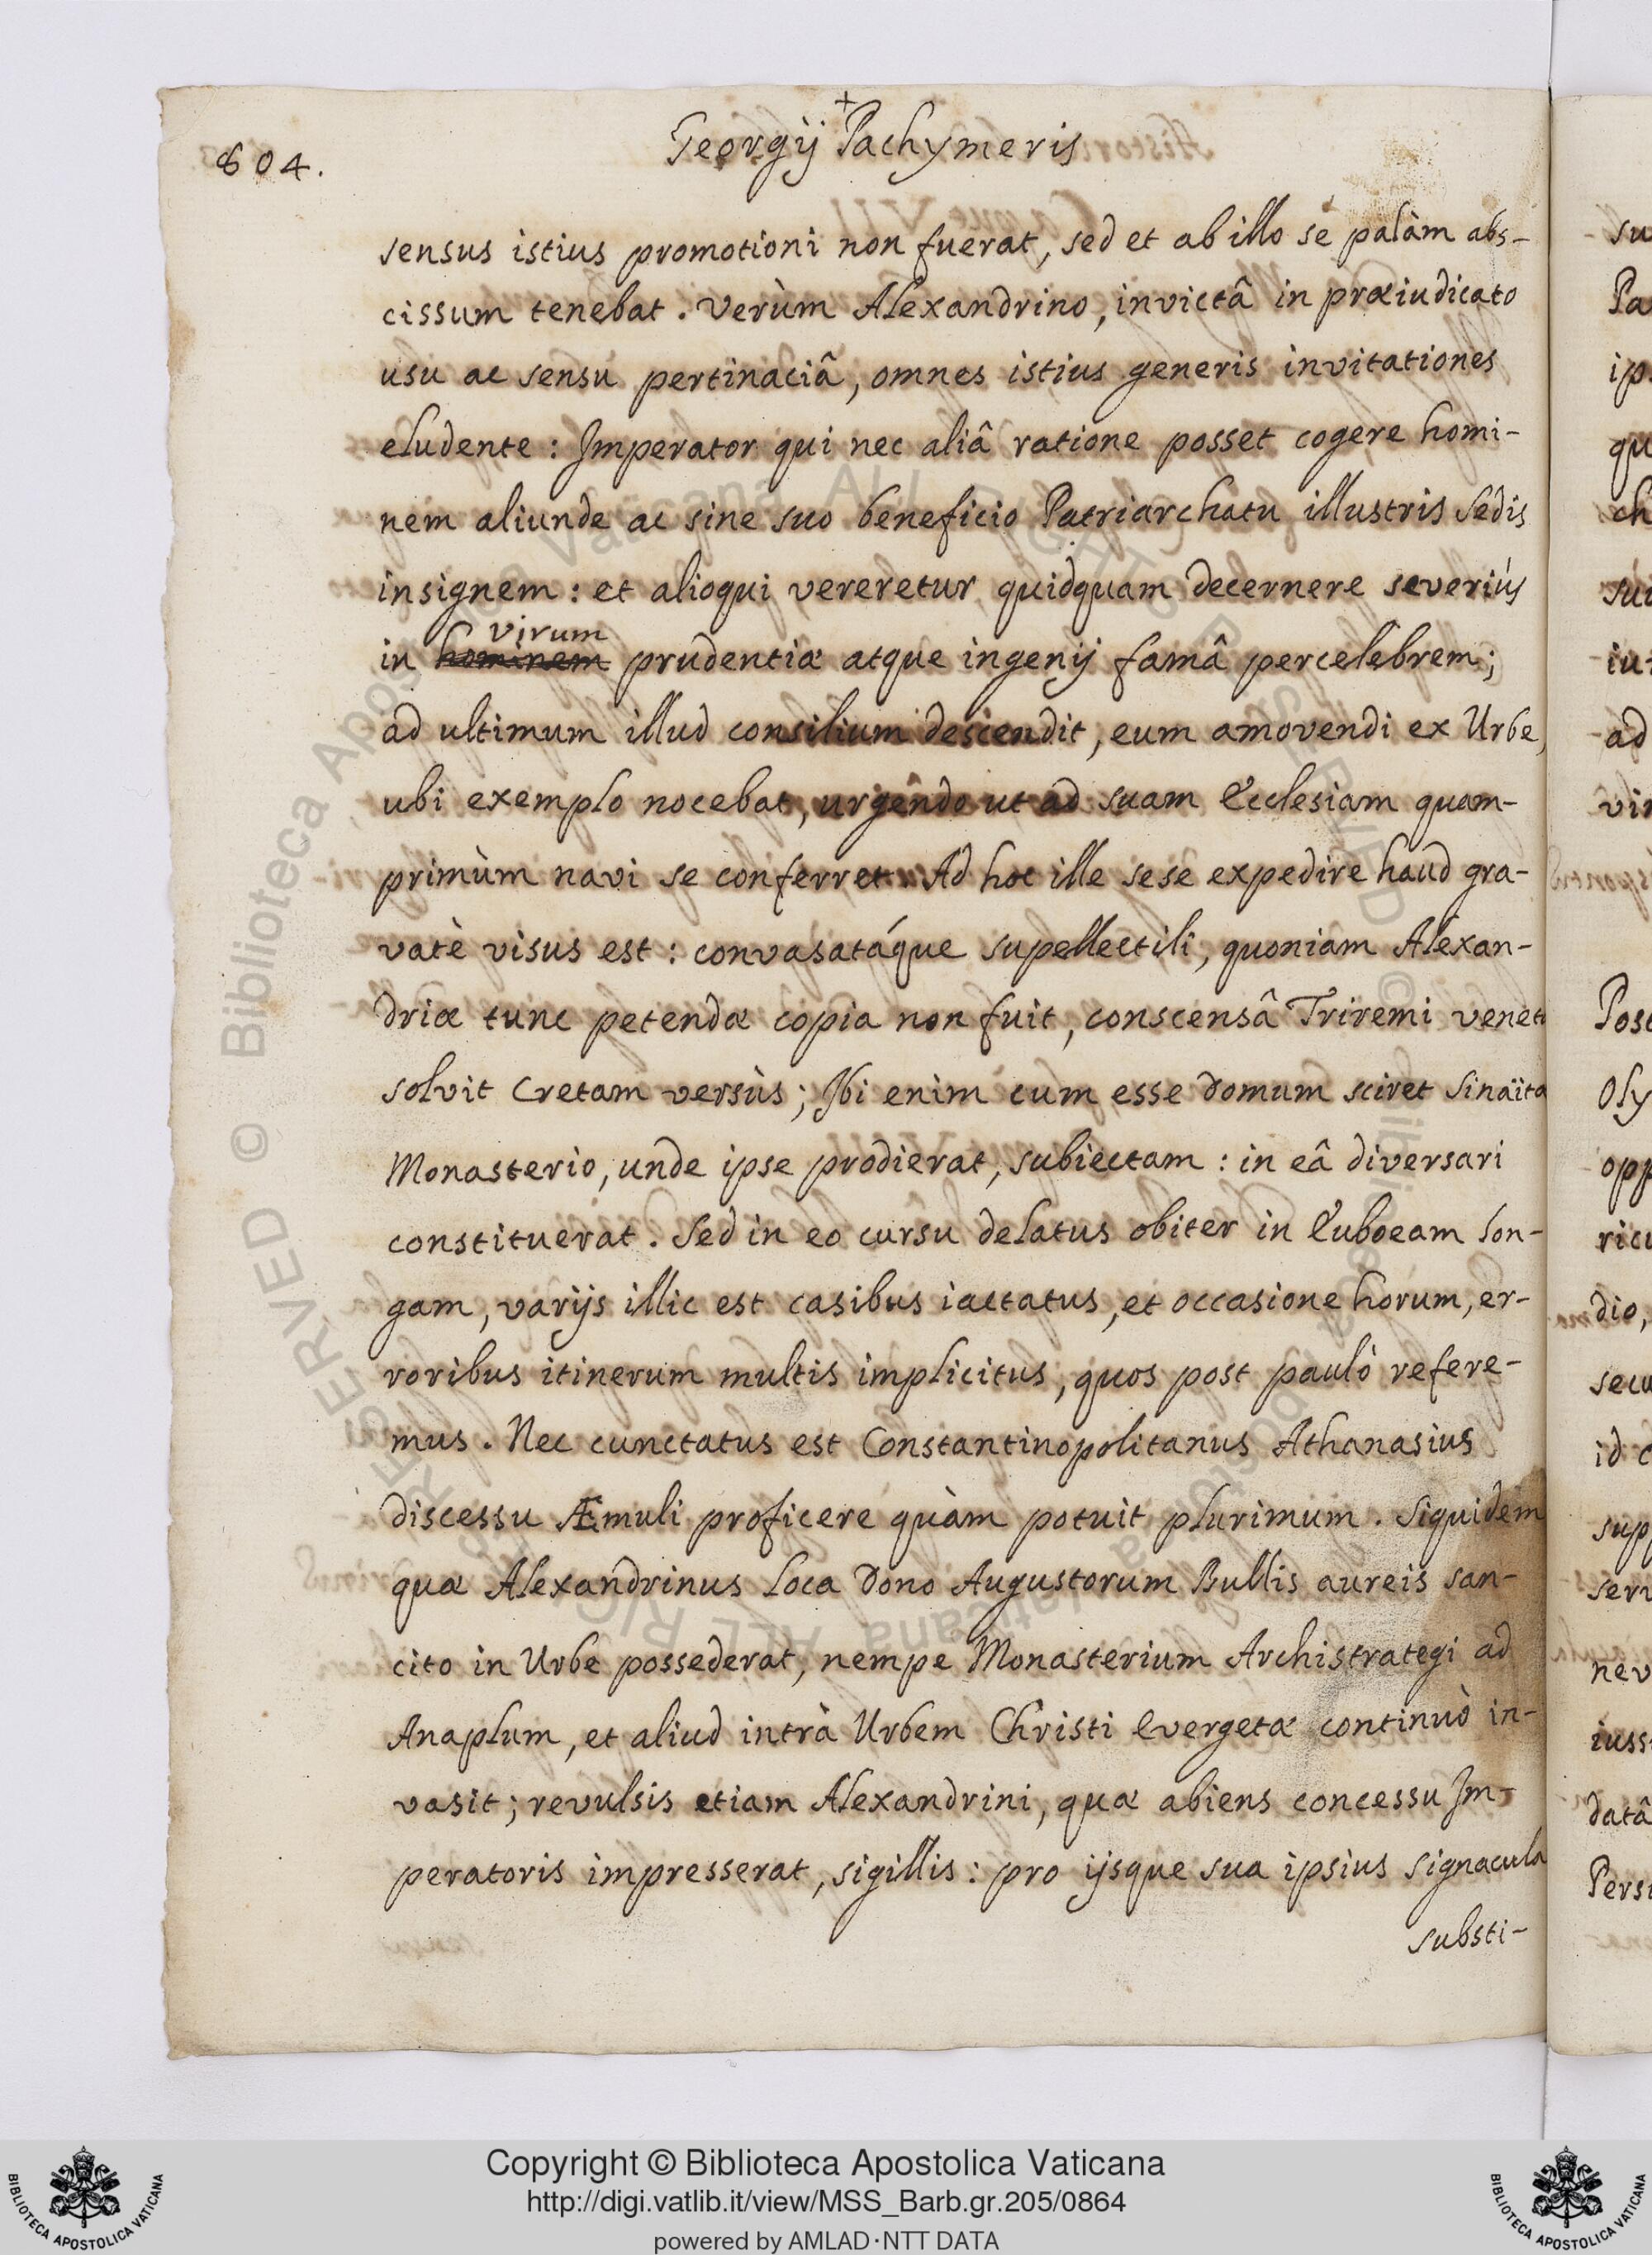 604.
Georgij Pachymeris
sensus istius promotioni non fuerat, sed et ab illo se palàm abs-
cissum tenebat. Verùm Alexandrino, invictâ in præiudicato
usu ac sensu pertinaciâ, omnes istius generis invitationes
eludente: Imperator qui nec aliâ ratione posset cogere homi-
nem aliunde ac sine suo beneficio Patriarchatu illustris Sedis
insignem: et alioqui vereretur quidquam decernere severiùs
virum
in hominem prudentiæ atque ingenij famâ percelebrem;
ad ultimum illud consilium descendit, eum amovendi ex Urbe,
ubi exemplo nocebat, urgendo ut ad suam Ecclesiam quam-
primùm navi se conferret. Ad hoc ille sese expedire haud gra-
vatè visus est: convasatáque supellectili, quoniam Alexan-
driæ tunc petendæ copia non fuit, conscensâ Triremi venet
solvit Cretam versùs; Ibi enim cum esse domum sciret Sinaïta
Monasterio, unde ipse prodierat, subiectam: in eâ diversari
constituerat. Sed in eo cursu delatus obiter in Euboeam lon-
gam, varijs illic est casibus iactatus, et occasione horum, er-
roribus itinerum multis implicitus, quos post paulò refere-
mus. Nec cunctatus est Constantinopolitanus Athanasius
discessu Æmuli proficere quàm potuit plurimum. Siquidem
quæ Alexandrinus loca dono Augustorum Bullis aureis san-
cito in Urbe possederat, nempe Monasterium Archistrategi ad
Anaplum, et aliud intrà Urbem Christi Evergetæ continuò in-
vasit; revulsis etiam Alexandrini, quæ abiens concessu Im-
peratoris impresserat, sigillis: pro ijsque sua ipsius signacula
substi-
Copyright © Biblioteca Apostolica Vaticana
http://digi.vatlib.it/view/MSS_Barb.gr.205/0864
powered by AMLAD·NTT DATA
BIBLIOTECA APOSTOLICA VATICANA
BIBLIOTECA APOSTOLICA VATICANA